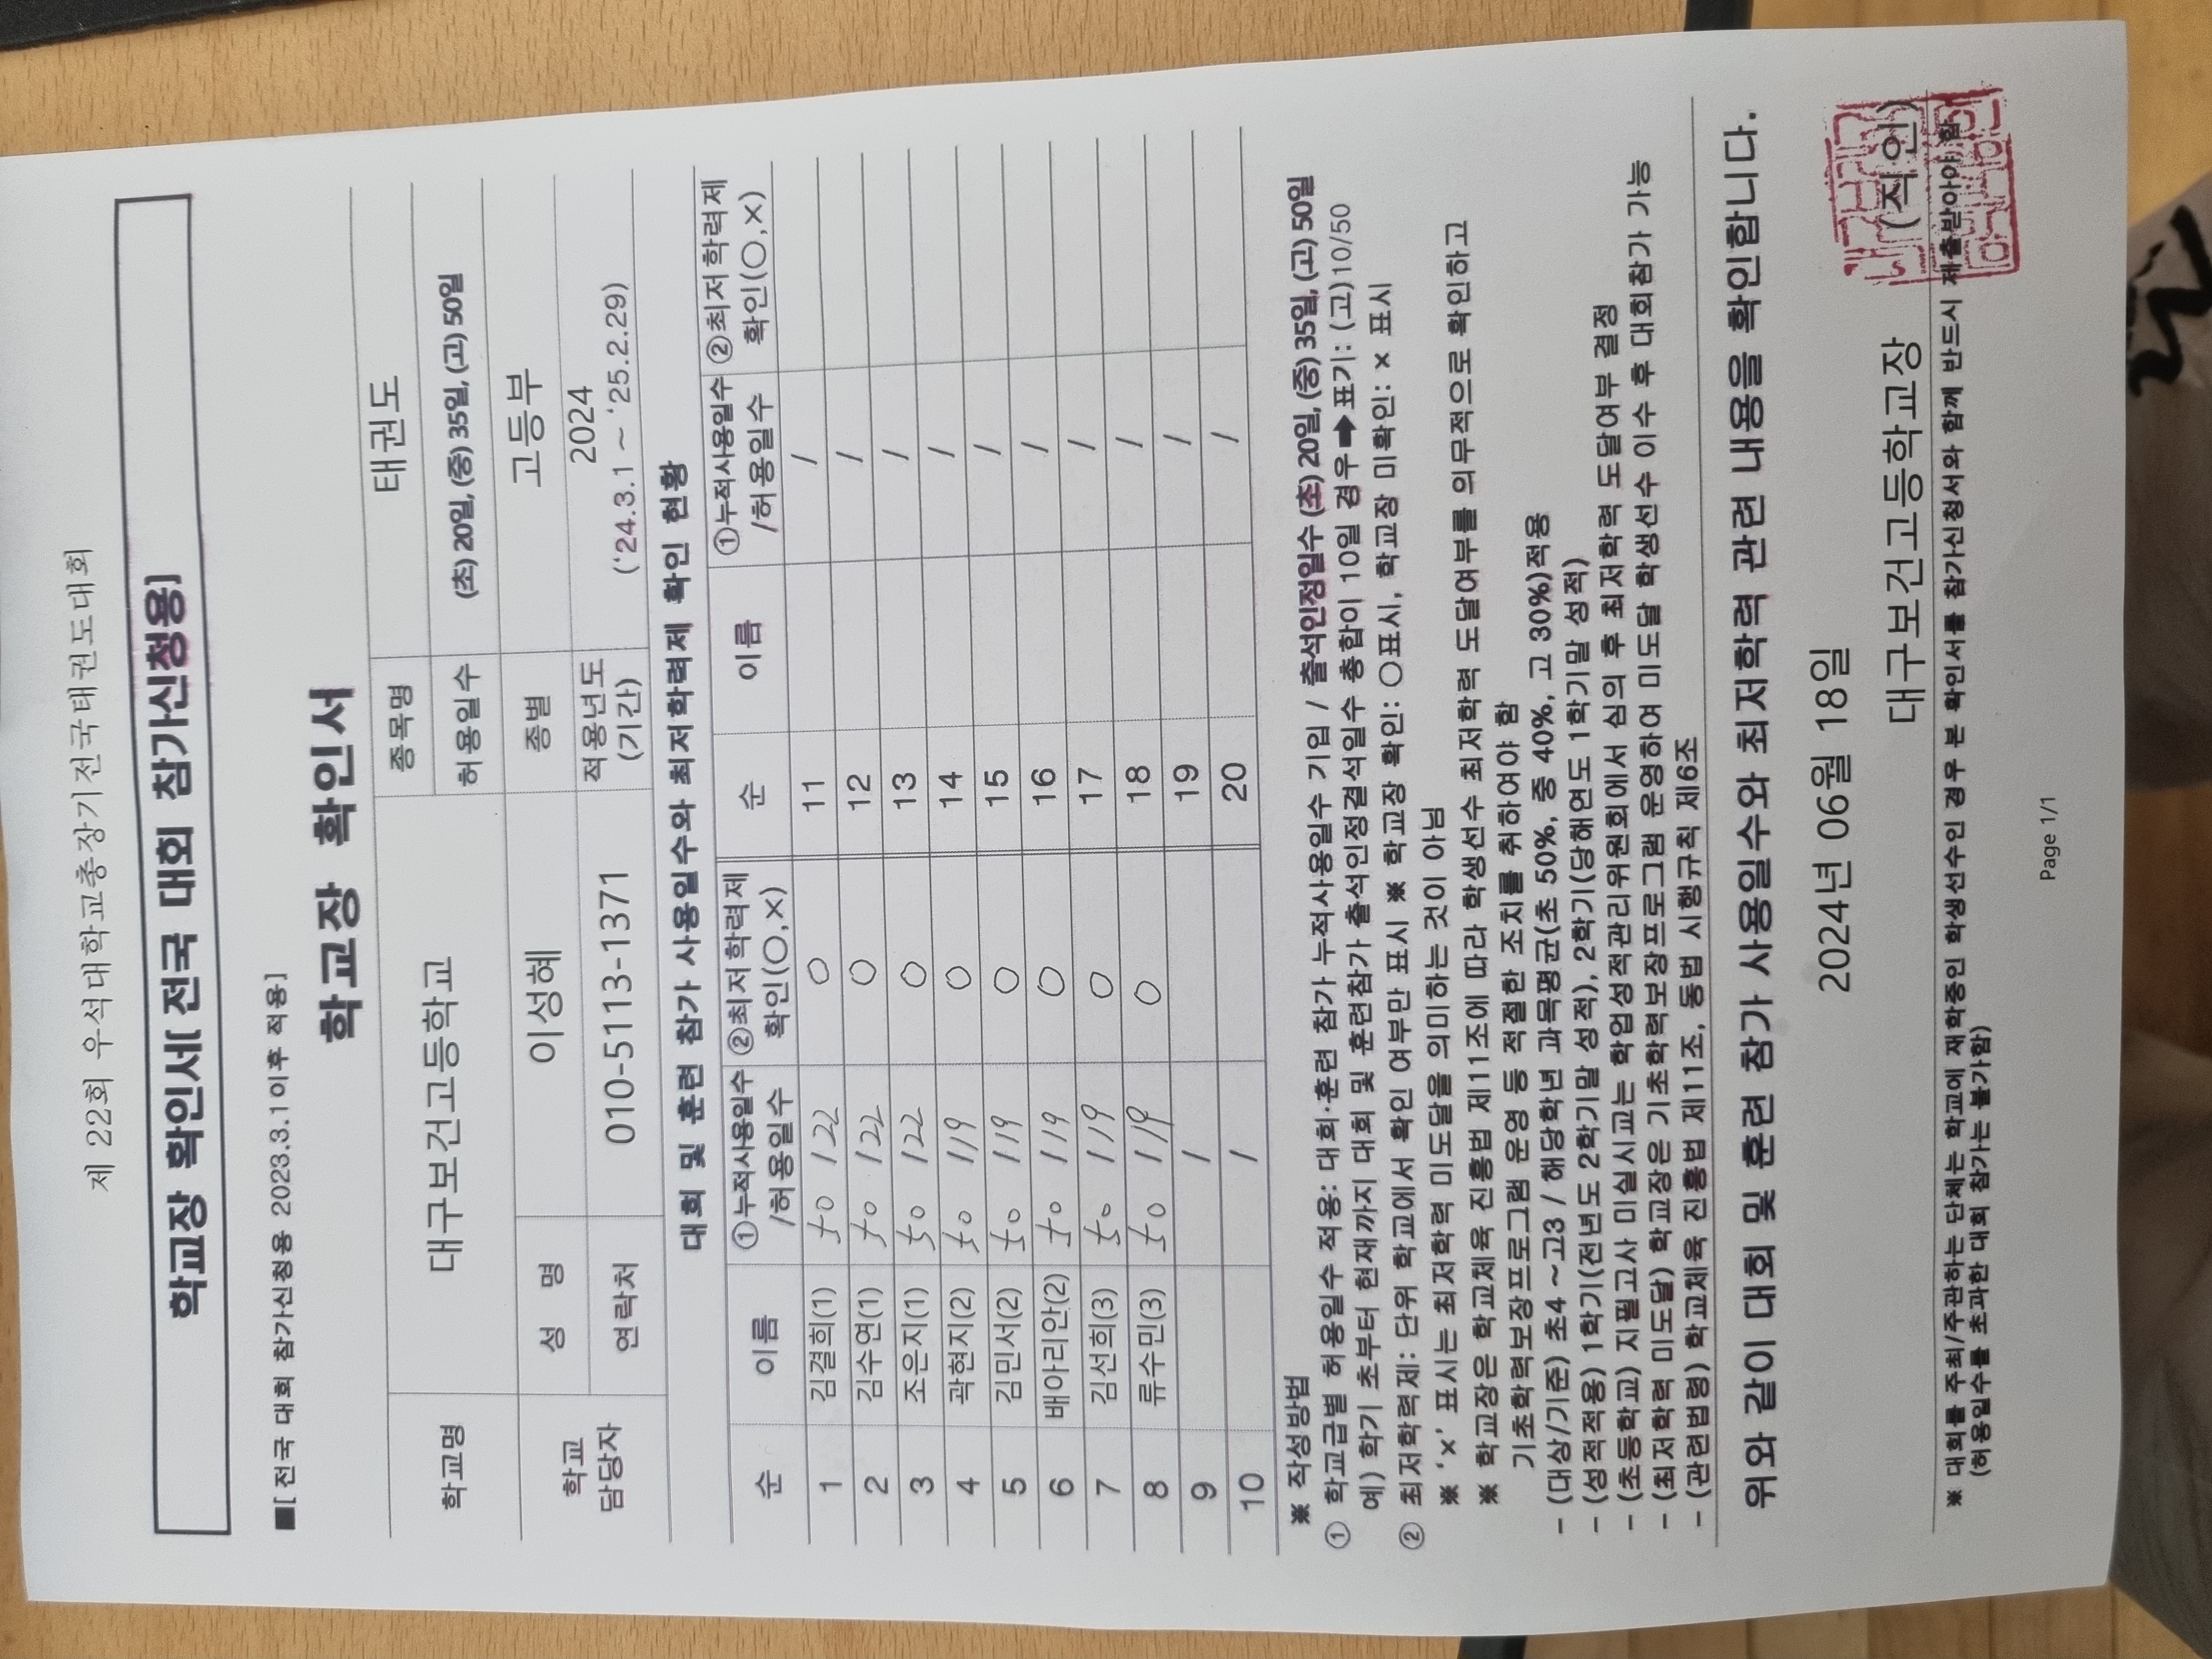 제 22회 우석대학교총장기전국태권도대회
학교장 확인서[전국 대회 참가신청용]
■[전국 대회 참가신청용 2023.3.1이후 적용]
학교장 확인서
학교명 대구보건고등학교 종목명 태권도
허용일수 (초) 20일, (중) 35일, (고) 50일
학교 담당자 성 명 이성혜 종별 고등부
연락처 010-5113-1371 적용년도 (기간) 2024 ('24.3.1 ~ '25.2.29)
대회 및 훈련 참가 사용일수와 최저학력제 확인 현황
순 이름 ①누적사용일수 /허용일수 ②최저학력제 확인(○,×) 순 이름 ①누적사용일수 /허용일수 ②최저학력제 확인(○,×)
1 김결희(1) 50 / 22 ○ 11 /
2 김수연(1) 50 / 22 ○ 12 /
3 조은지(1) 50 / 22 ○ 13 /
4 곽현지(2) 50 / 19 ○ 14 /
5 김민서(2) 50 / 19 ○ 15 /
6 배아리안(2) 50 / 19 ○ 16 /
7 김선희(3) 50 / 19 ○ 17 /
8 류수민(3) 50 / 19 ○ 18 /
9 / 19 /
10 / 20 /
※ 작성방법
① 학교급별 허용일수 적용: 대회·훈련 참가 누적사용일수 기입 / 출석인정일수 (초) 20일, (중) 35일, (고) 50일
예) 학기 초부터 현재까지 대회 및 훈련참가 출석인정결석일수 총합이 10일 경우➡표기: (고)10/50
② 최저학력제: 단위 학교에서 확인 여부만 표시 ※ 학교장 확인: ○표시, 학교장 미확인: × 표시
※ '×' 표시는 최저학력 미도달을 의미하는 것이 아님
※ 학교장은 학교체육 진흥법 제11조에 따라 학생선수 최저학력 도달여부를 의무적으로 확인하고
기초학력보장프로그램 운영 등 적절한 조치를 취하여야 함
- (대상/기준) 초4 ~ 고3 / 해당학년 과목평균(초 50%, 중 40%, 고 30%)적용
- (성적적용) 1학기(전년도 2학기말 성적), 2학기(당해연도 1학기말 성적)
- (초등학교) 지필고사 미실시교는 학업성적관리위원회에서 심의 후 최저학력 도달여부 결정
- (최저학력 미도달) 학교장은 기초학력보장프로그램 운영하여 미도달 학생선수 이수 후 대회참가 가능
- (관련법령) 학교체육 진흥법 제11조, 동법 시행규칙 제6조
위와 같이 대회 및 훈련 참가 사용일수와 최저학력 관련 내용을 확인합니다.
2024년 06월 18일
대구보건고등학교장 (직인)
※ 대회를 주최/주관하는 단체는 학교에 재학중인 학생선수인 경우 본 확인서를 참가신청서와 함께 반드시 제출받아야 함
(허용일수를 초과한 대회 참가는 불가함)
Page 1/1